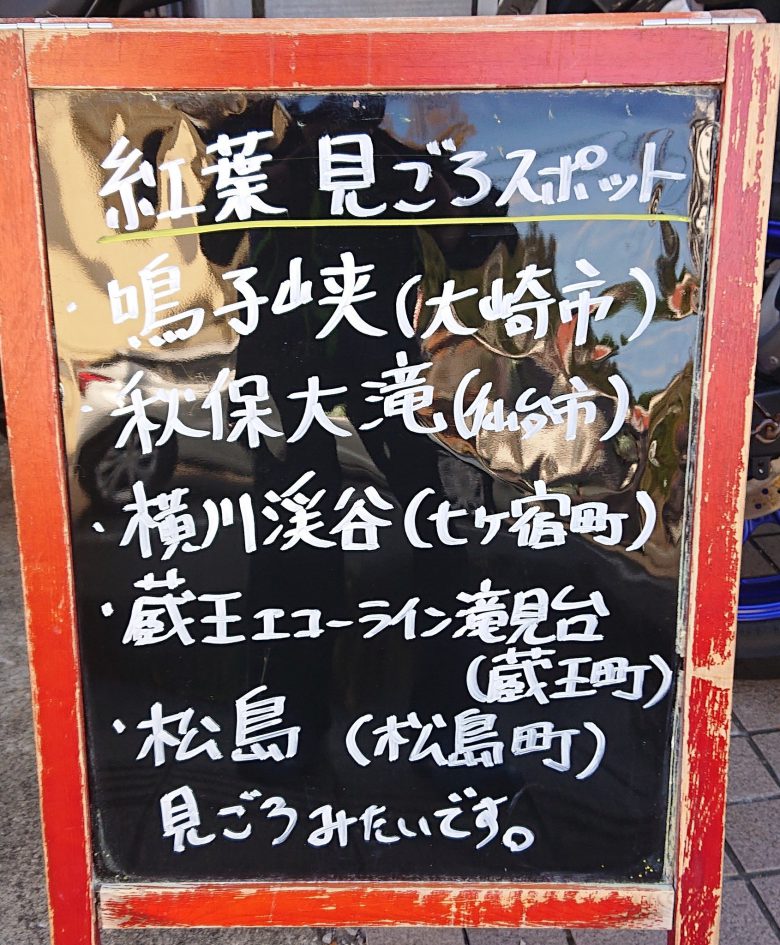 紅葉 見ごろスポット
・鳴子峡(大崎市)
・秋保大滝(仙台市)
・横川渓谷(七ケ宿町)
・蔵王エコーライン滝見台
(蔵王町)
・松島 (松島町)
見ごろみたいです。